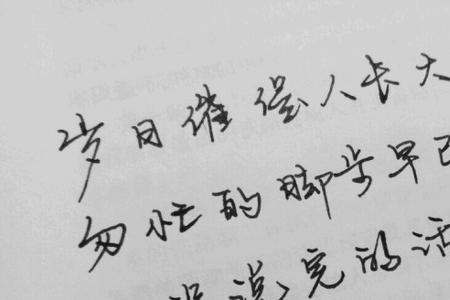 岁月催促人长大
匆忙的脚步早已
没说完的话